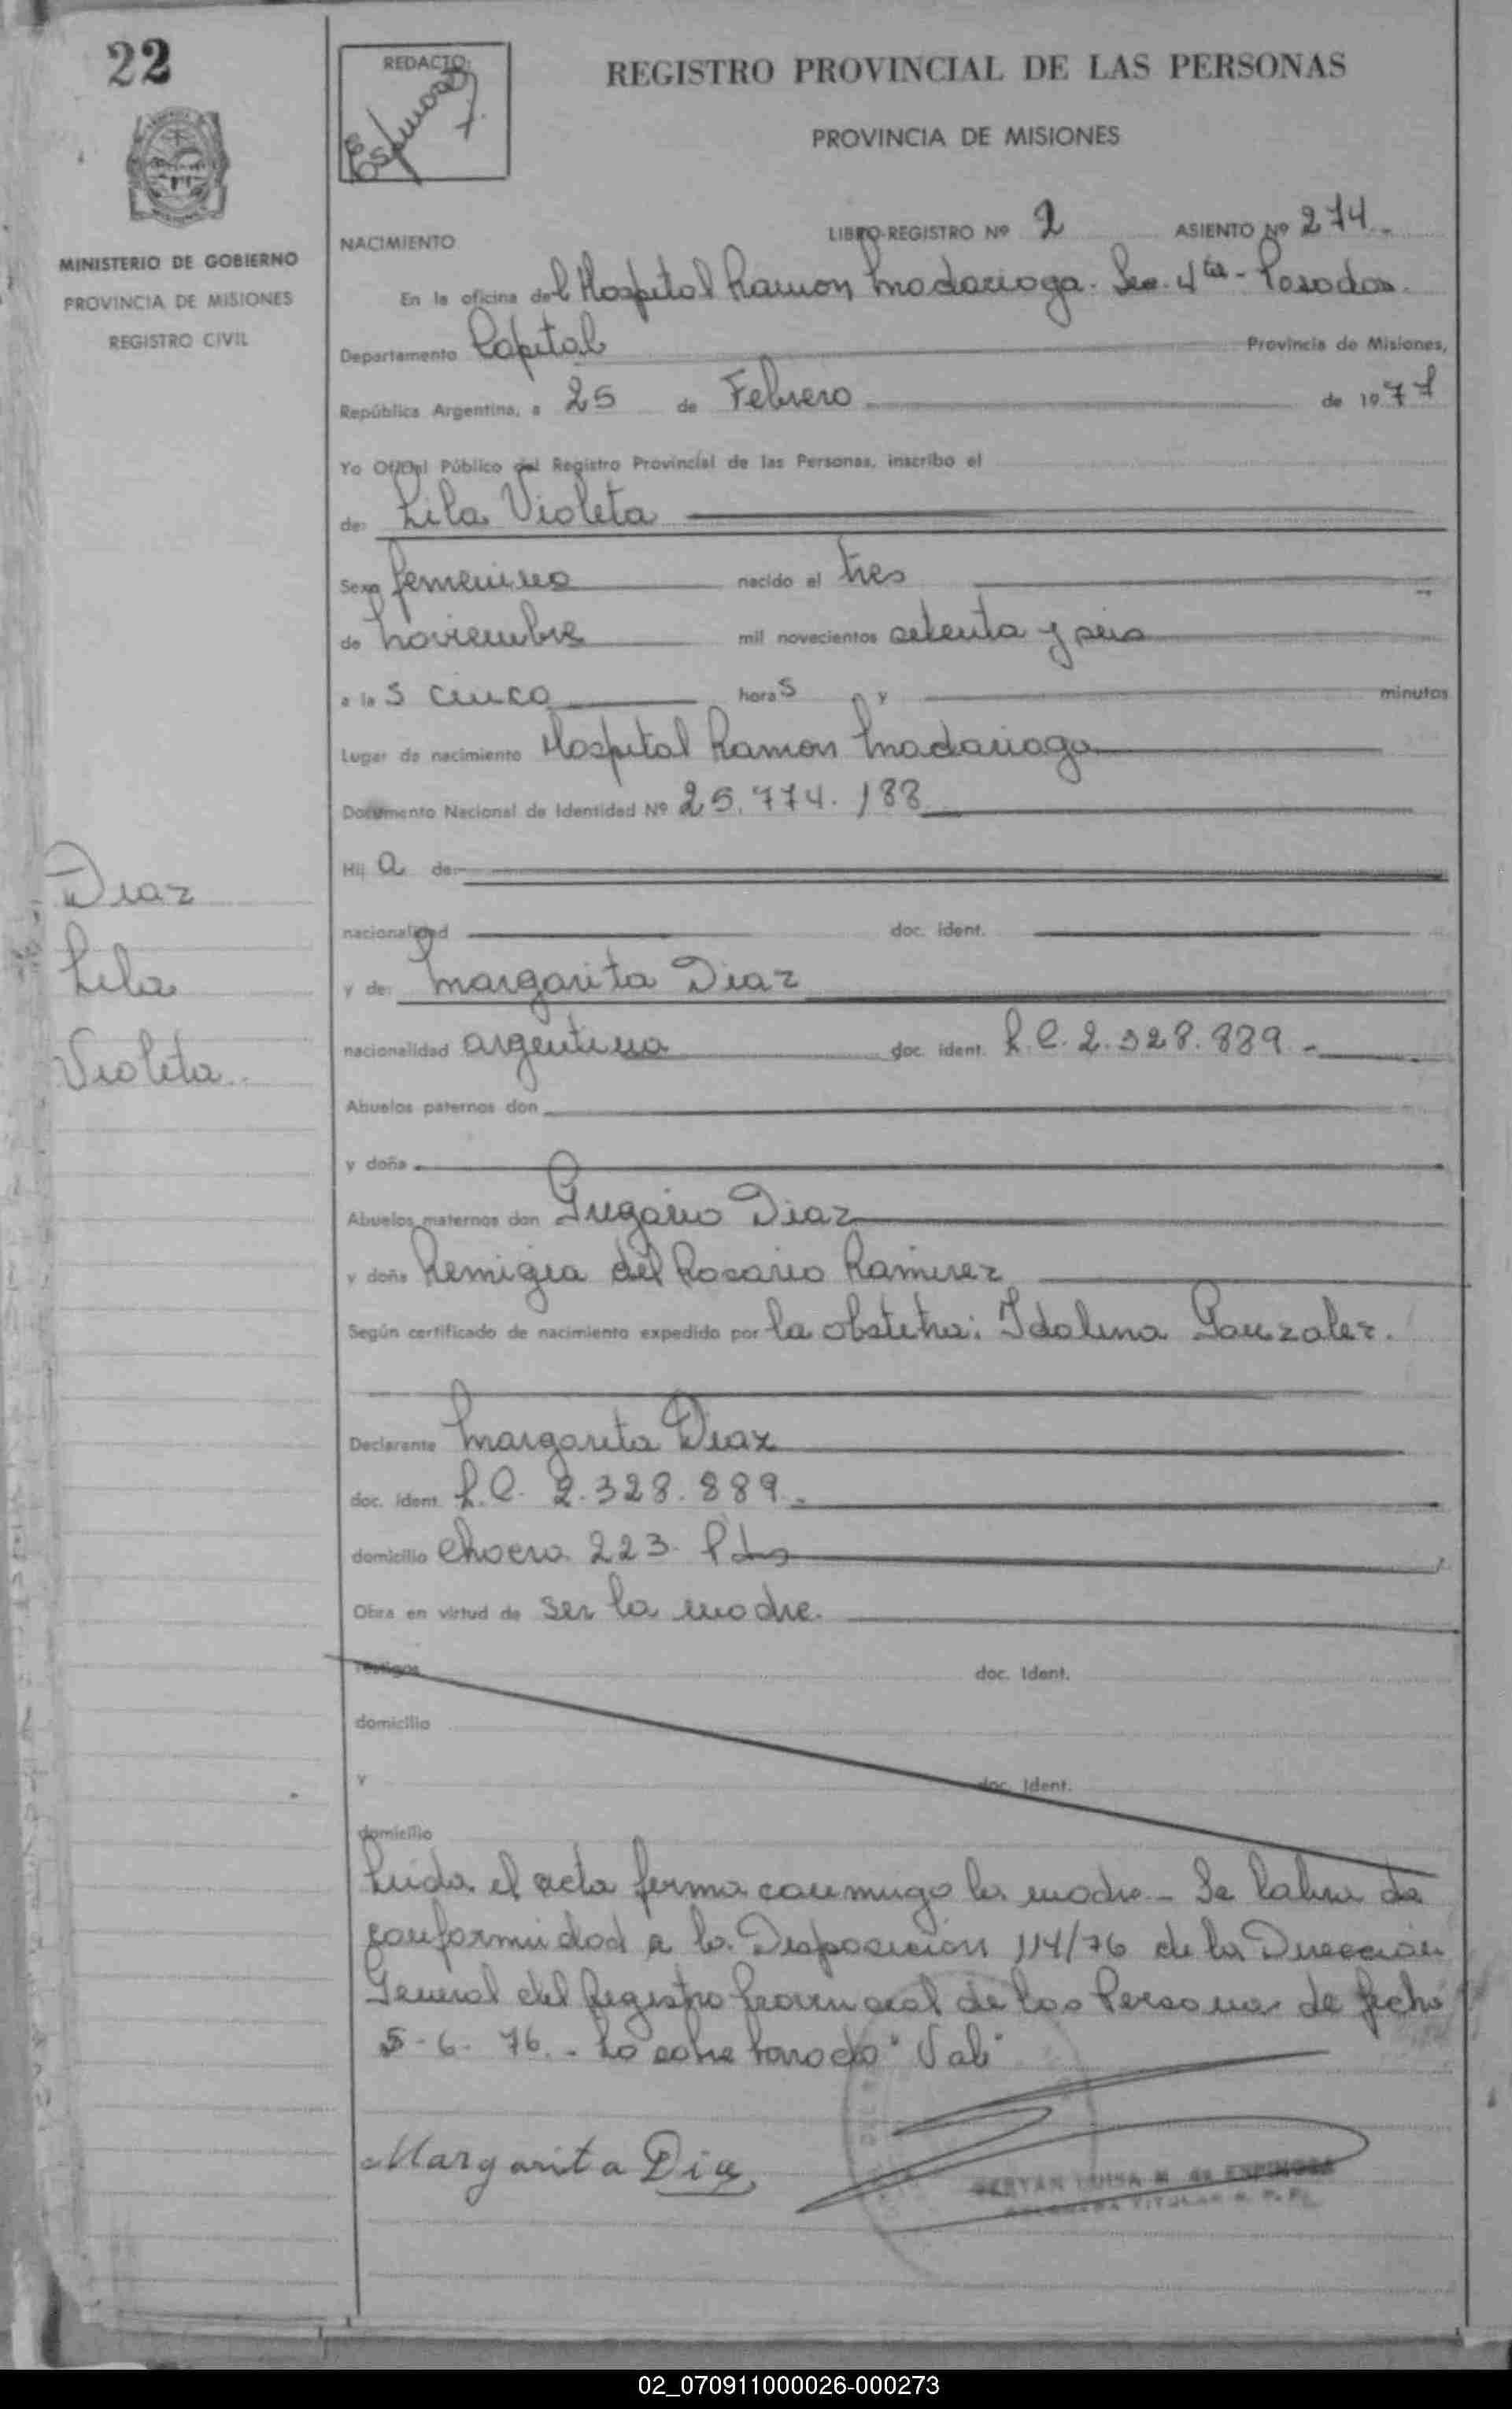 22
REDACTO:
Espinosa
REGISTRO PROVINCIAL DE LAS PERSONAS
PROVINCIA DE MISIONES
MINISTERIO DE GOBIERNO
PROVINCIA DE MISIONES
REGISTRO CIVIL
NACIMIENTO
LIBRO-REGISTRO Nº 2 ASIENTO Nº 274.-
En la oficina del Hospital Ramon Madariaga. Sec. 4ta - Posadas.
Departamento Capital Provincia de Misiones,
República Argentina, a 25 de Febrero de 1977
Yo Oficial Público del Registro Provincial de las Personas, inscribo el
de: Lila Violeta
Sexo femenino nacido el tres
de noviembre mil novecientos setenta y seis
a las cinco horas y minutos
Lugar de nacimiento Hospital Ramon Madariaga
Documento Nacional de Identidad Nº 25.774.188
Hij a de:
nacionalidad doc. ident.
y de: Margarita Diaz
nacionalidad argentina doc. ident. L.C. 2.328.889.-
Abuelos paternos don
y doña
Abuelos maternos don Gregorio Diaz
y doña Remigia del Rosario Ramirez
Según certificado de nacimiento expedido por la obstetra: Idalina Gonzalez.
Declarante Margarita Diaz
doc. ident. L.C. 2.328.889.
domicilio 223. Pdas
Obra en virtud de ser la madre.
Testigos doc. Ident.
domicilio
y doc. Ident.
domicilio
Leida el acta firma conmigo la madre.- Se labra de
conformidad a la Disposicion 114/76 de la Direccion
General del Registro Provincial de las Personas de fecha
5-6-76.- Lo sobre borrado "Vale"
Margarita Diaz
LUISA M. de ESPINOSA
TITULAR R. P. P.
Diaz
Lila
Violeta.
02_070911000026-000273